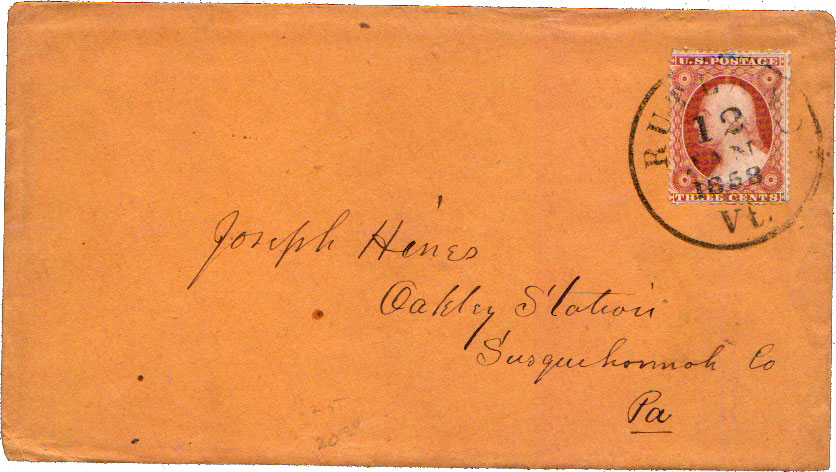 U.S. POSTAGE
12
JAN
1858
Vt.
THREE CENTS
Joseph Hines
Oakley Station
Susquehannah Co
Pa
25
20.00